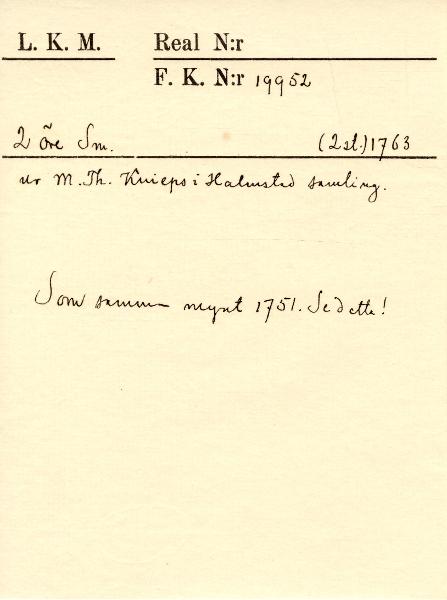 L. K. M. Real N:r
F. K. N:r 19952
2 öre Sm. (2st.) 1763
ur M. Th. Knieps i Halmsted samling.
Som samma mynt 1751. Se dette!